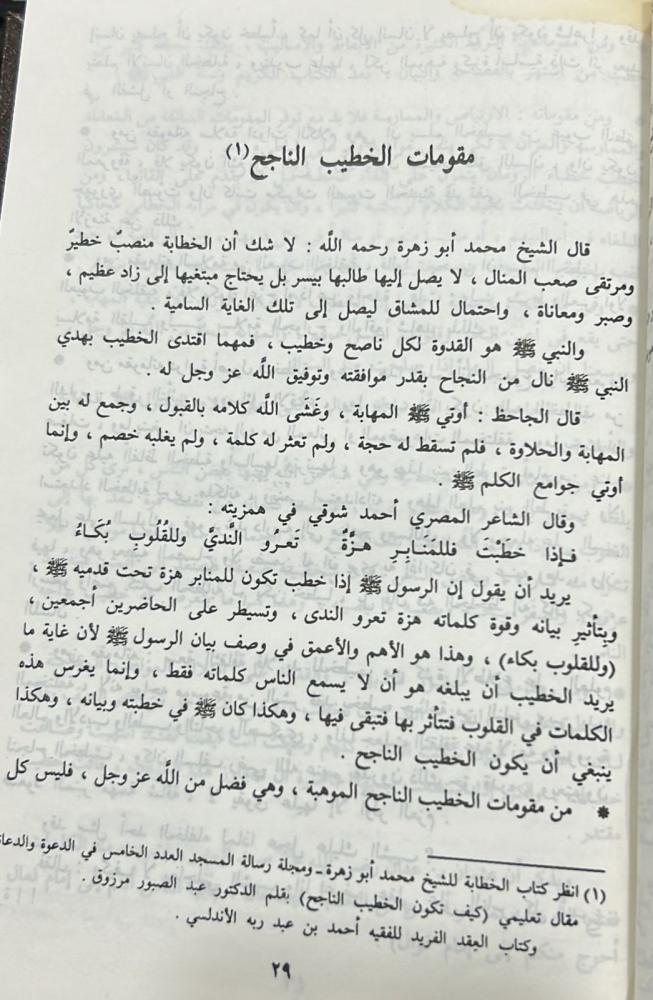 مقومات الخطيب الناجح(١)
قال الشيخ محمد أبو زهرة رحمه الله : لا شك أن الخطابة منصبٌ خطيرٌ
ومرتقى صعب المنال ، لا يصل إليها طالبها بيسر بل يحتاج مبتغيها إلى زاد عظيم ،
وصبر ومعاناة ، واحتمال للمشاق ليصل إلى تلك الغاية السامية .
والنبي ﷺ هو القدوة لكل ناصح وخطيب ، فمهما اقتدى الخطيب بهدي
النبي ﷺ نال من النجاح بقدر موافقته وتوفيق الله عز وجل له .
قال الجاحظ : أوتي ﷺ المهابة ، وغَشَى الله كلامه بالقبول ، وجمع له بين
المهابة والحلاوة ، فلم تسقط له حجة ، ولم تعثر له كلمة ، ولم يغلبه خصم ، وإنما
أوتي جوامع الكَلم ﷺ .
وقال الشاعر المصري أحمد شوقي في همزيته :
فـإذا خطَبْتَ فللمَنَـابـرِ هـزَّةٌ تَعـرُو النَّديَّ وللقُلُوبِ بُكَـاءُ
يريد أن يقول إن الرسول ﷺ إذا خطب تكون للمنابر هزة تحت قدميه ﷺ ،
وبتأثيرِ بيانه وقوة كلماته هزة تعرو الندى ، وتسيطر على الحاضرين أجمعين ،
(وللقلوب بكاء) ، وهذا هو الأهم والأعمق في وصف بيان الرسول ﷺ لأن غاية ما
يريد الخطيب أن يبلغه هو أن لا يسمع الناس كلماته فقط ، وإنما يغرس هذه
الكلمات في القلوب فتتأثر بها فتبقى فيها ، وهكذا كان ﷺ في خطبته وبيانه ، وهكذا
ينبغي أن يكون الخطيب الناجح .
* من مقومات الخطيب الناجح الموهبة ، وهي فضل من الله عز وجل ، فليس كل
(١) انظر كتاب الخطابة للشيخ محمد أبو زهرة ـ ومجلة رسالة المسجد العدد الخامس في الدعوة والدعاة
مقال تعليمي (كيف تكون الخطيب الناجح) بقلم الدكتور عبد الصبور مرزوق .
وكتاب العِقد الفريد للفقيه أحمد بن عبد ربه الأندلسي .
٢٩